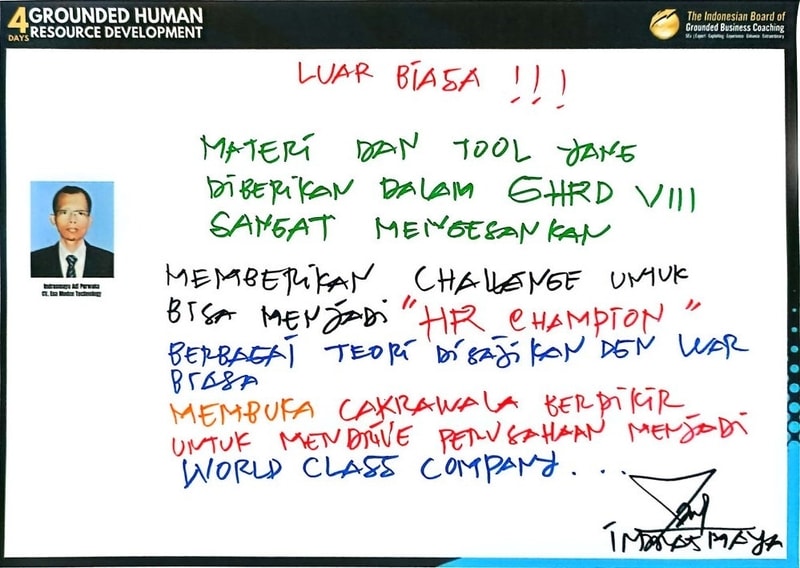 4 DAYS GROUNDED HUMAN
RESOURCE DEVELOPMENT
The Indonesian Board of
Grounded Business Coaching
LUAR BIASA !!!
MATERI DAN TOOL YANG
DIBERIKAN DALAM GHRD VIII
SANGAT MENGESANKAN
Indrasmaya Adi Purwoko
MEMBERIKAN CHALLENGE UNTUK
BISA MENJADI "HR CHAMPION"
BERBAGAI TEORI DISAJIKAN DEN LUAR
BIASA
MEMBUKA CAKRAWALA BERPIKIR
UNTUK MENDRIVE PERUSAHAAN MENJADI
WORLD CLASS COMPANY...
INDRASMAYA